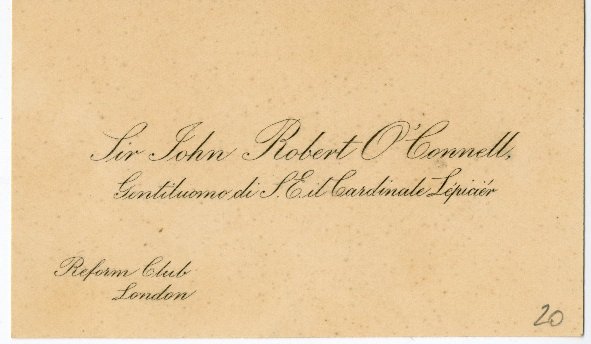 Sir John Robert O'Connell,
Gentiluomo di S.E il Cardinale Lépiciér
Reform Club
London
20